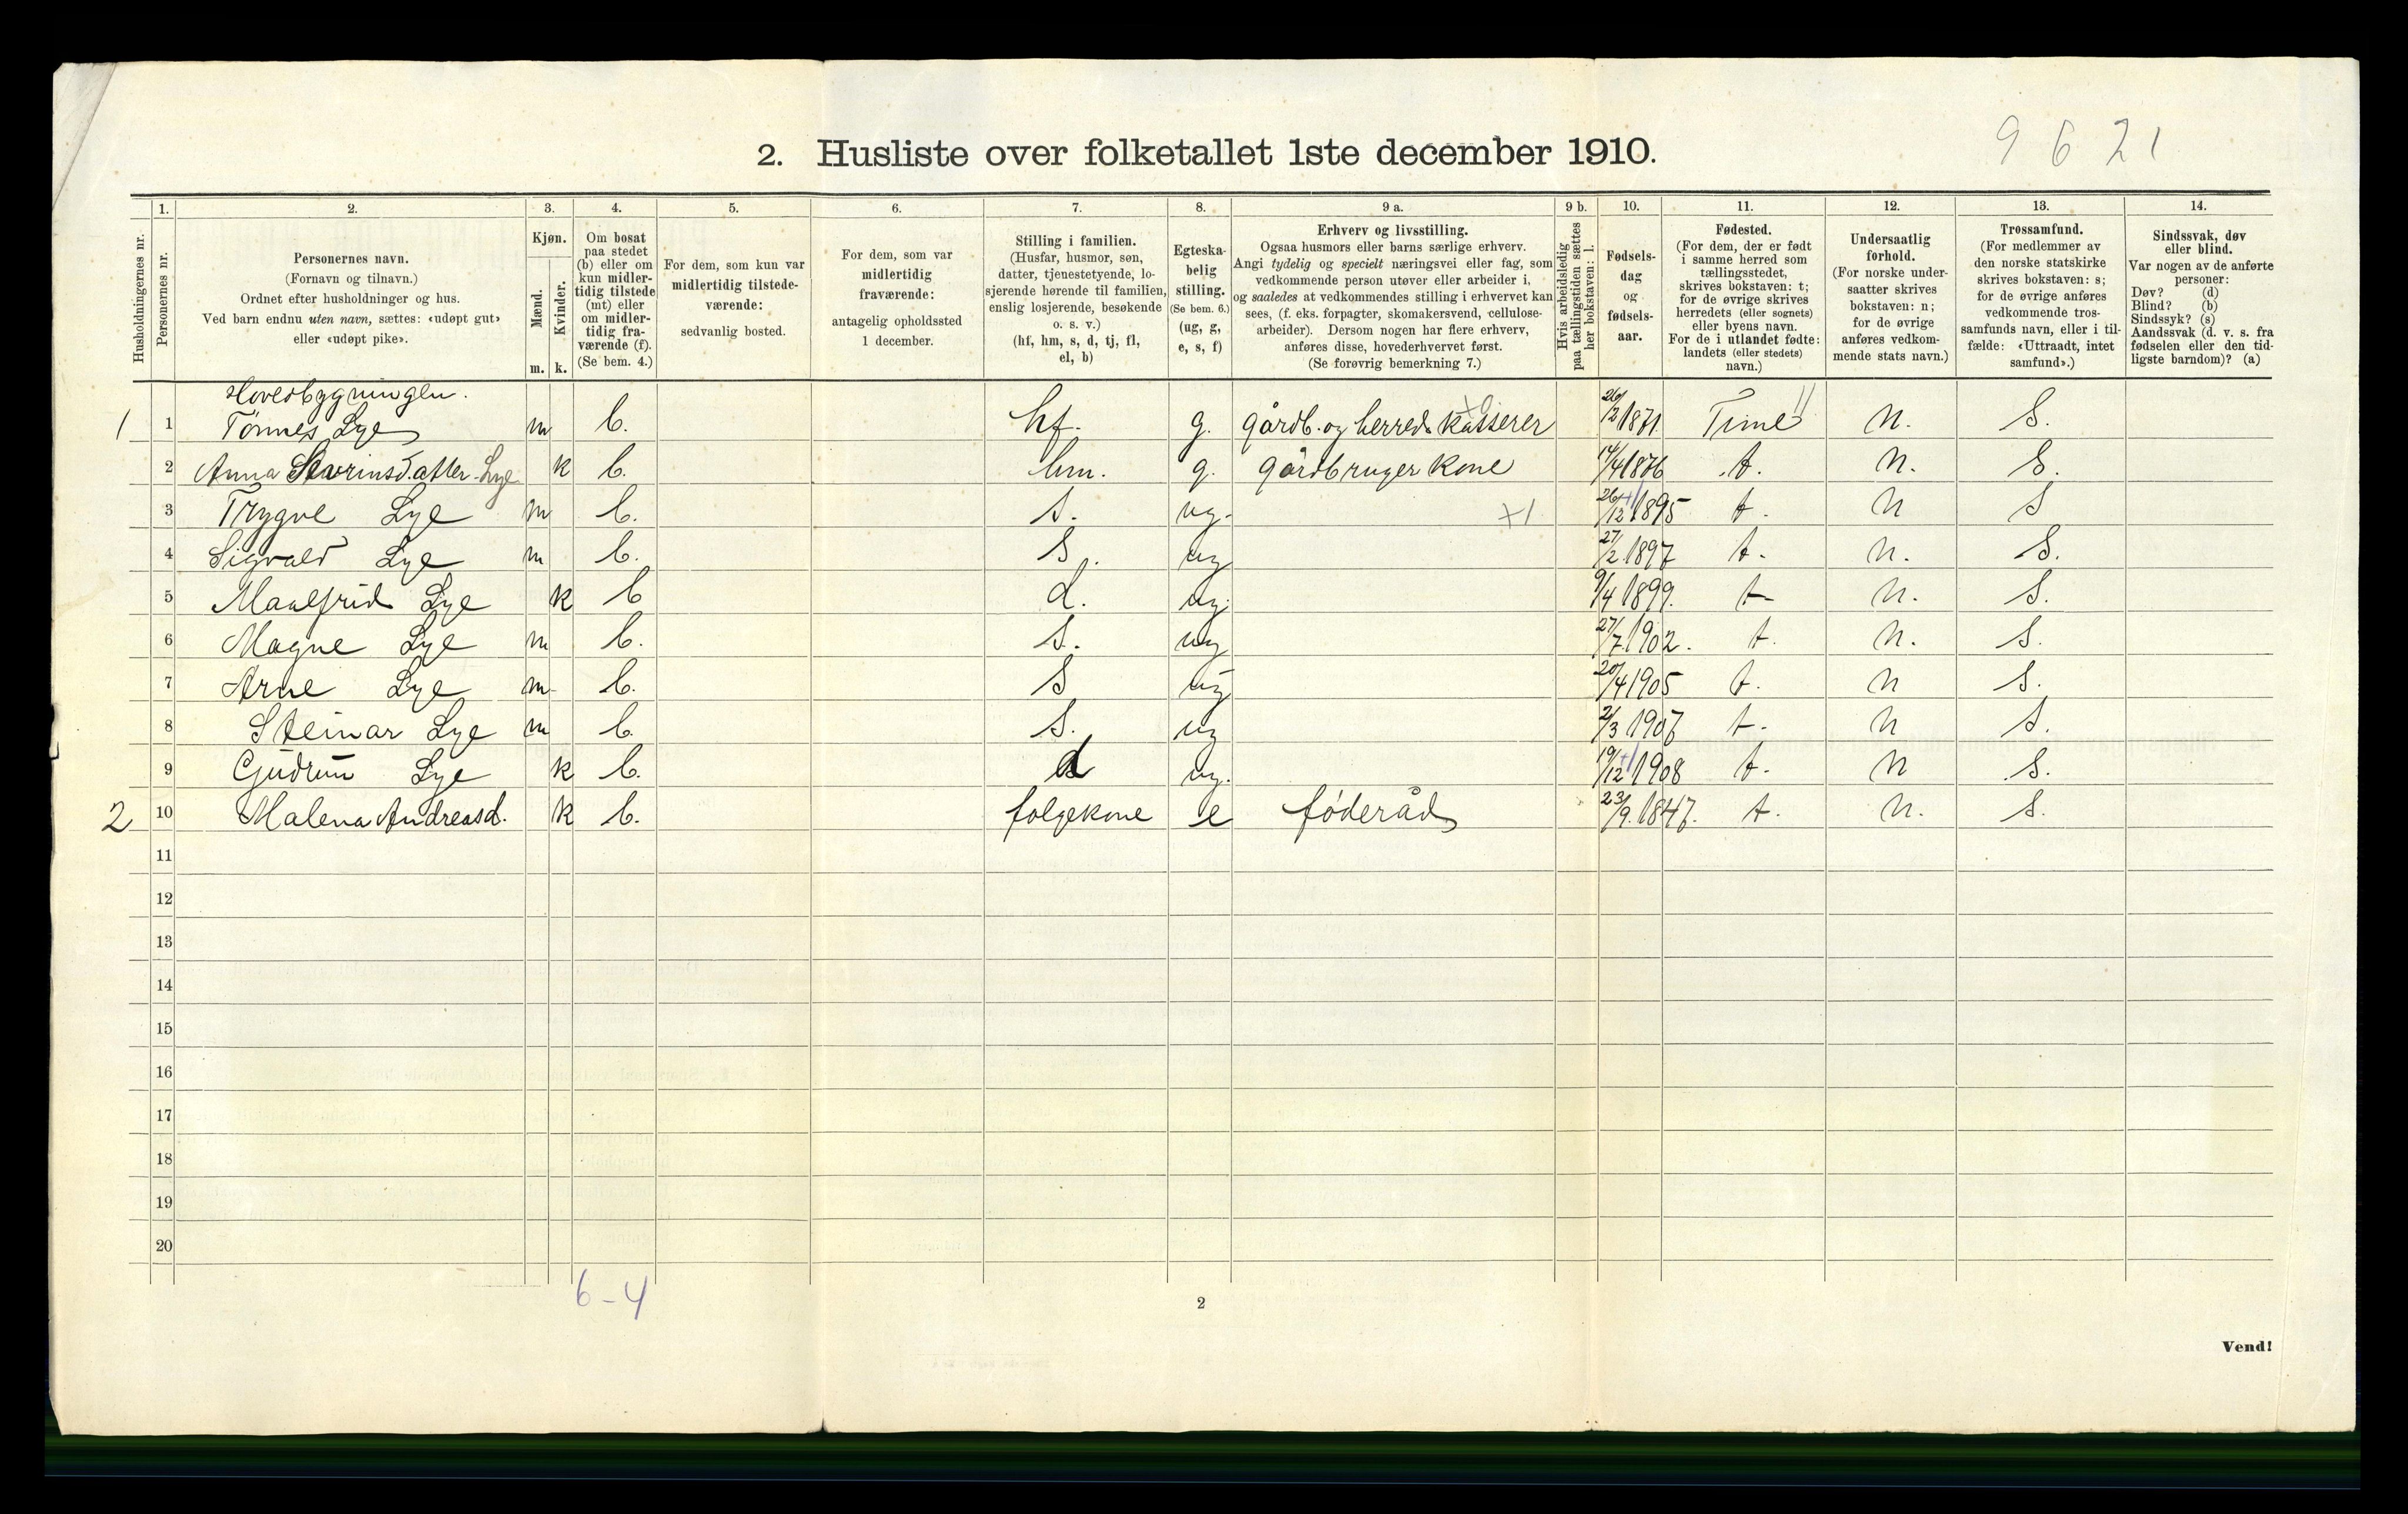 9 6 2 1
2. Husliste over folketallet 1ste december 1910.
1. 2. 3. 4. 5. 6. 7. 8. 9 a. 9 b. 10. 11. 12. 13. 14.
Husholdningernes nr.
Personernes nr.
Personernes navn.
(Fornavn og tilnavn.)
Ordnet efter husholdninger og hus.
Ved barn endnu uten navn, sættes: «udøpt gut»
eller «udøpt pike».
Kjøn.
Mænd.
Kvinder.
m. k.
Om bosat
paa stedet
(b) eller om
kun midler-
tidig tilstede
(mt) eller
om midler-
tidig fra-
værende (f).
(Se bem. 4.)
For dem, som kun var
midlertidig tilstede-
værende:
sedvanlig bosted.
For dem, som var
midlertidig
fraværende:
antagelig opholdssted
1 december.
Stilling i familien.
(Husfar, husmor, søn,
datter, tjenestetyende, lo-
sjerende hørende til familien,
enslig losjerende, besøkende
o. s. v.)
(hf, hm, s, d, tj, fl,
el, b)
Egteska-
belig
stilling.
(Se bem. 6.)
(ug, g,
e, s, f)
Erhverv og livsstilling.
Ogsaa husmors eller barns særlige erhverv.
Angi tydelig og specielt næringsvei eller fag, som
vedkommende person utøver eller arbeider i,
og saaledes at vedkommendes stilling i erhvervet kan
sees, (f. eks. forpagter, skomakersvend, cellulose-
arbeider). Dersom nogen har flere erhverv,
anføres disse, hovederhvervet først.
(Se forøvrig bemerkning 7.)
Hvis arbeidsledig
paa tællingstiden sættes
her bokstaven: l.
Fødsels-
dag
og
fødsels-
aar.
Fødested.
(For dem, der er født
i samme herred som
tællingsstedet,
skrives bokstaven: t;
for de øvrige skrives
herredets (eller sognets)
eller byens navn.
For de i utlandet fødte:
landets (eller stedets)
navn.)
Undersaatlig
forhold.
(For norske under-
saatter skrives
bokstaven: n;
for de øvrige
anføres vedkom-
mende stats navn.)
Trossamfund.
(For medlemmer av
den norske statskirke
skrives bokstaven: s;
for de øvrige anføres
vedkommende tros-
samfunds navn, eller i til-
fælde: «Uttraadt, intet
samfund».)
Sindssvak, døv
eller blind.
Var nogen av de anførte
personer:
Døv? (d)
Blind? (b)
Sindssyk? (s)
Aandssvak (d. v. s. fra
fødselen eller den tid-
ligste barndom)? (a)
Hovedbygningen.
1 1 Tønnes Lye m b. hf. g. gårdb. og herredskasserer 26/2 1871 Time n. S.
2 Anna Sivrinsdatter Lye k b. hm. g. gårdbrugerkone 14/4 1876 t. n. S.
3 Trygve Lye m b. s. ug. 26/12 1895 t. n S
4 Sigvald Lye m b. S. ug 27/2 1897 t. n. S.
5 Maalfrid Lye k b d. ug. 9/4 1899. t n. S.
6 Magne Lye m b. s. ug 27/7 1902. t. n. S.
7 Arne Lye m b. S ug 20/4 1905 t. n S.
8 Steinar Lye m b. s. ug 2/3 1907 t. n S.
9 Gudrun Lye k b. d ug. 19/12 1908 t. n S.
2 10 Malena Andreasd. k b. folgekone e føderåd 23/9. 1847. t. n. S.
11
12
13
14
15
16
17
18
19
20
6-4
2
Vend!